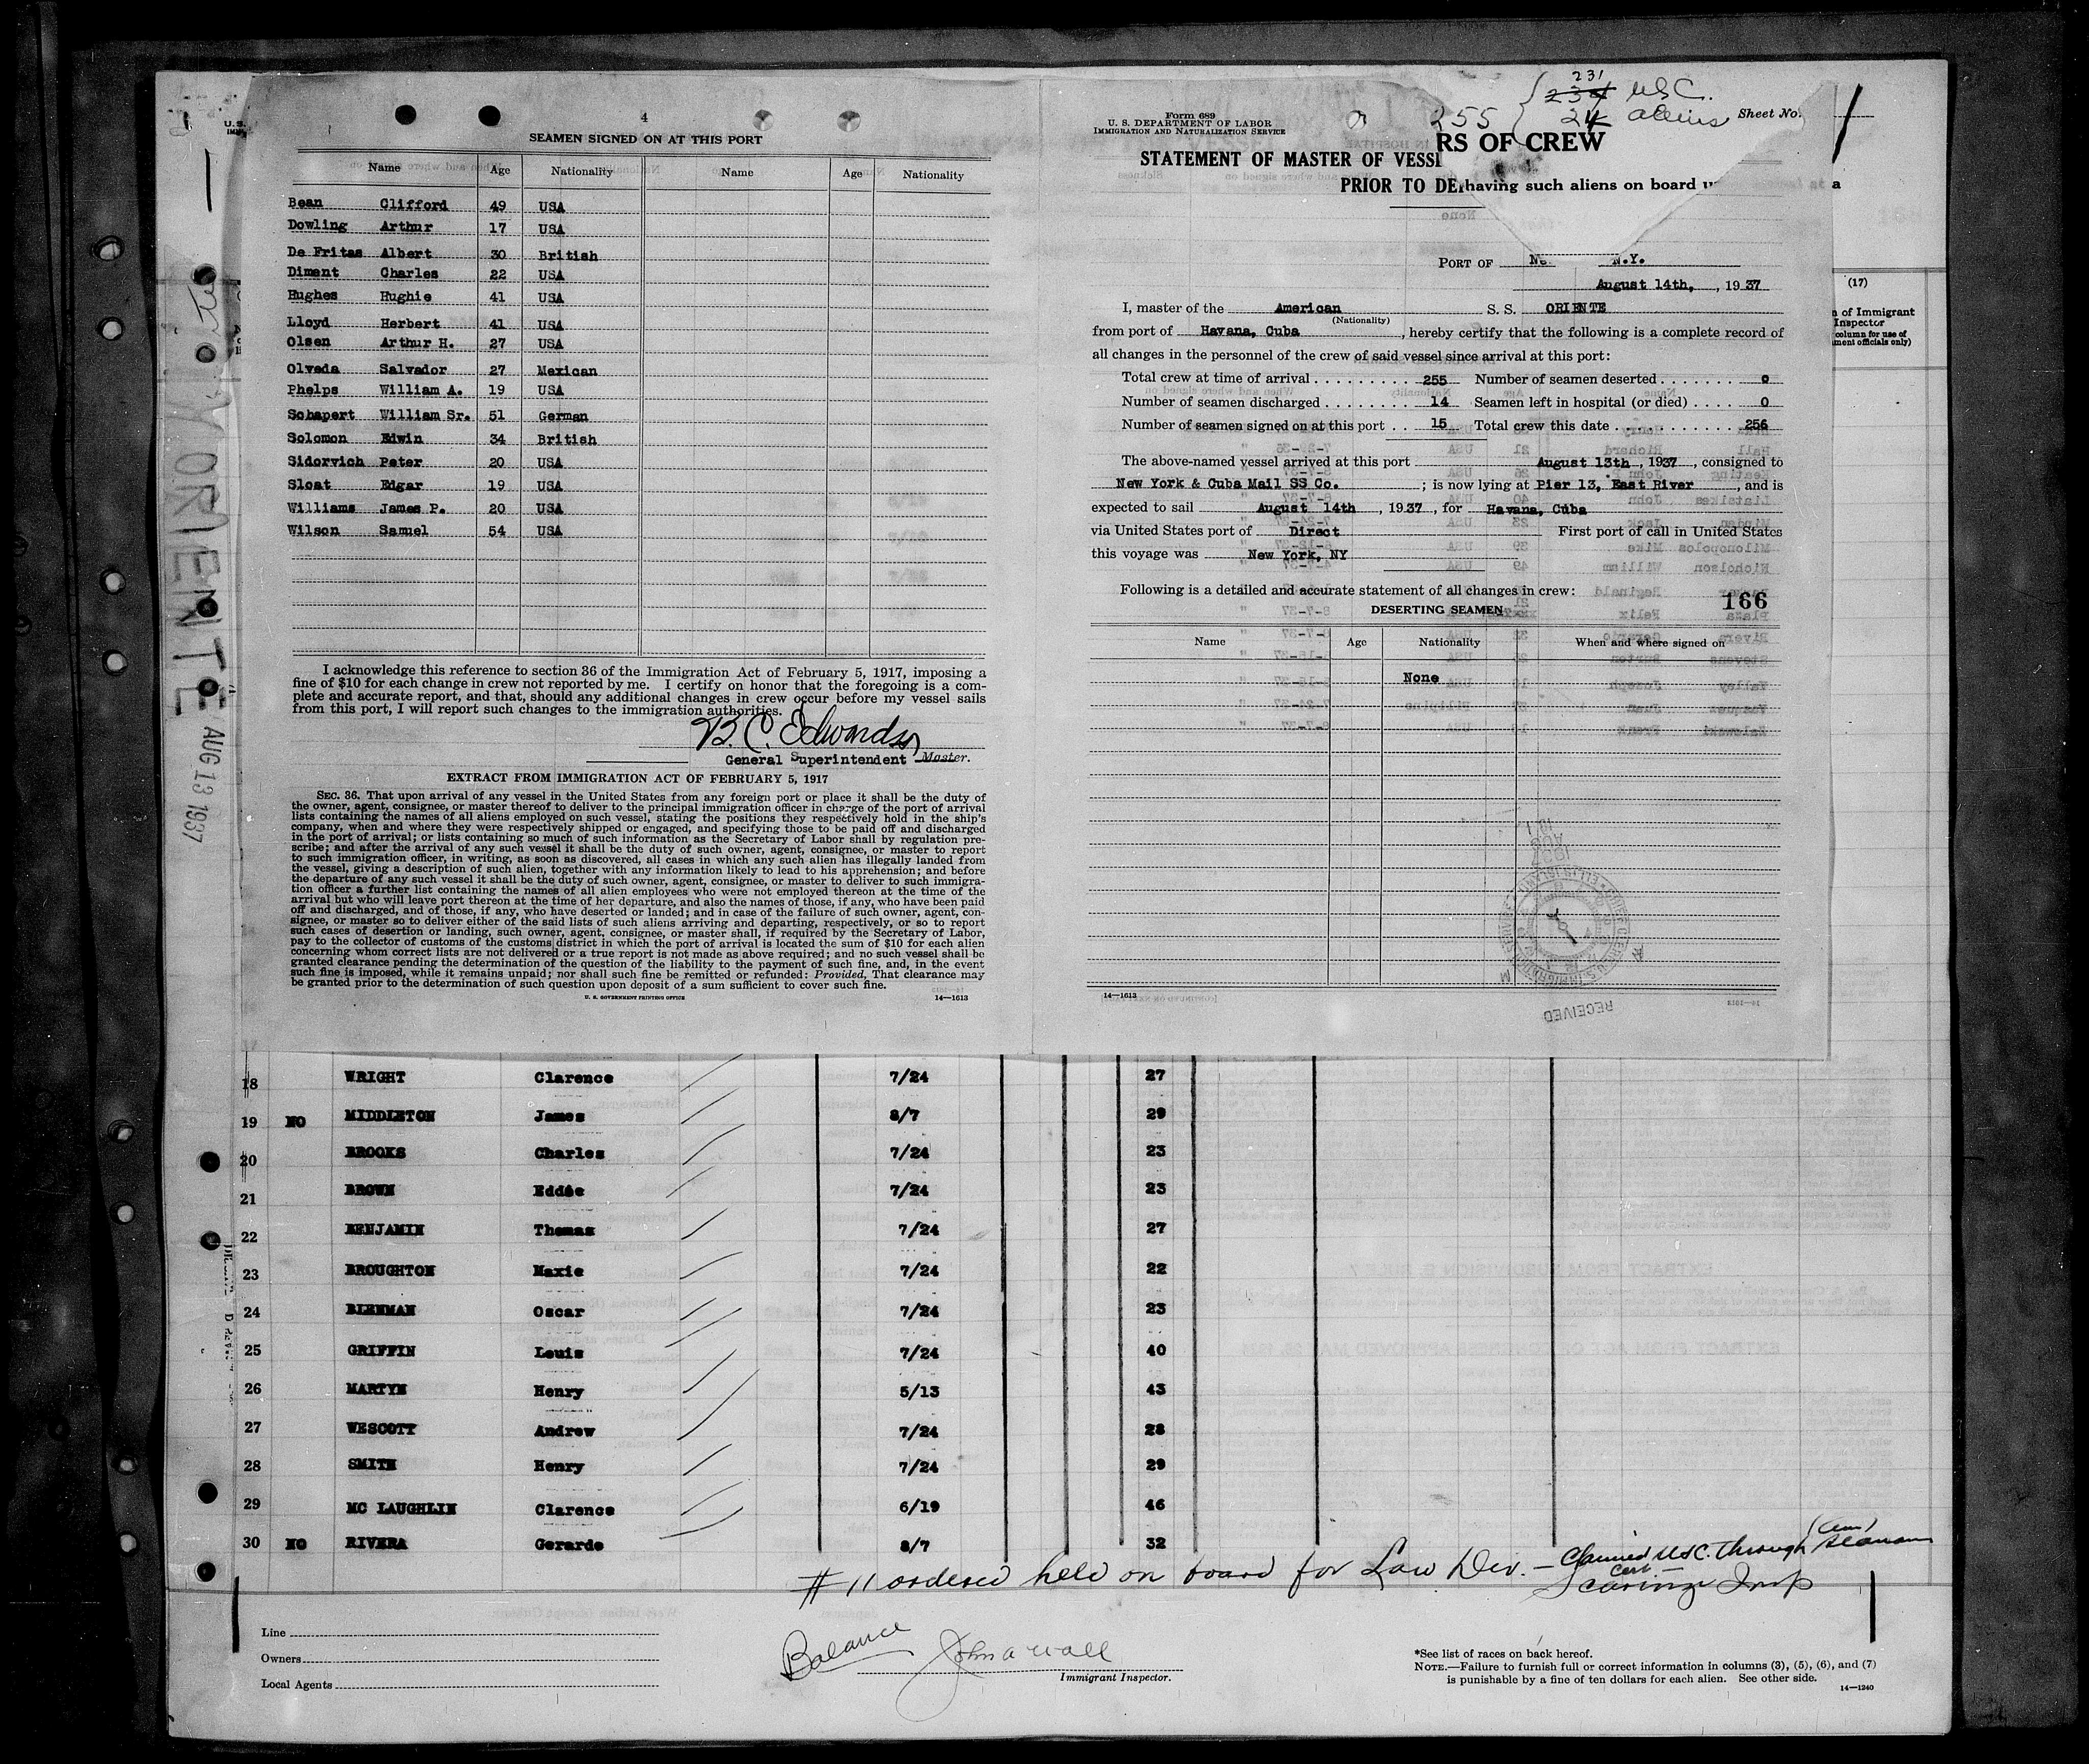 4
SEAMEN SIGNED ON AT THIS PORT
Name Age Nationality Name Age Nationality
Bean Clifford 49 USA
Dowling Arthur 17 USA
De Fritas Albert 30 British
Diment Charles 22 USA
Hughes Hughie 41 USA
Lloyd Herbert 41 USA
Olsen Arthur H. 27 USA
Olveda Salvador 27 Mexican
Phelps William A. 19 USA
Schapert William Sr. 51 German
Solomon Edwin 34 British
Sidorvich Peter 20 USA
Sloat Edgar 19 USA
Williams James P. 20 USA
Wilson Samuel 54 USA
I acknowledge this reference to section 36 of the Immigration Act of February 5, 1917, imposing a
fine of $10 for each change in crew not reported by me. I certify on honor that the foregoing is a com-
plete and accurate report, and that, should any additional changes in crew occur before my vessel sails
from this port, I will report such changes to the immigration authorities.
B. C. Edwards
General Superintendent Master.
EXTRACT FROM IMMIGRATION ACT OF FEBRUARY 5, 1917
SEC. 36. That upon arrival of any vessel in the United States from any foreign port or place it shall be the duty of
the owner, agent, consignee, or master thereof to deliver to the principal immigration officer in charge of the port of arrival
lists containing the names of all aliens employed on such vessel, stating the positions they respectively hold in the ship's
company, when and where they were respectively shipped or engaged, and specifying those to be paid off and discharged
in the port of arrival; or lists containing so much of such information as the Secretary of Labor shall by regulation pre-
scribe; and after the arrival of any such vessel it shall be the duty of such owner, agent, consignee, or master to report
to such immigration officer, in writing, as soon as discovered, all cases in which any such alien has illegally landed from
the vessel, giving a description of such alien, together with any information likely to lead to his apprehension; and before
the departure of any such vessel it shall be the duty of such owner, agent, consignee, or master to deliver to such immigra-
tion officer a further list containing the names of all alien employees who were not employed thereon at the time of the
arrival but who will leave port thereon at the time of her departure, and also the names of those, if any, who have been paid
off and discharged, and of those, if any, who have deserted or landed; and in case of the failure of such owner, agent, con-
signee, or master so to deliver either of the said lists of such aliens arriving and departing, respectively, or so to report
such cases of desertion or landing, such owner, agent, consignee, or master shall, if required by the Secretary of Labor,
pay to the collector of customs of the customs district in which the port of arrival is located the sum of $10 for each alien
concerning whom correct lists are not delivered or a true report is not made as above required; and no such vessel shall be
granted clearance pending the determination of the question of the liability to the payment of such fine, and, in the event
such fine is imposed, while it remains unpaid; nor shall such fine be remitted or refunded: Provided, That clearance may
be granted prior to the determination of such question upon deposit of a sum sufficient to cover such fine.
U. S. GOVERNMENT PRINTING OFFICE 14—1613
ORIENTE
AUG 13 1937
Form 689
U. S. DEPARTMENT OF LABOR
IMMIGRATION AND NATURALIZATION SERVICE
255 { 231 USC.
24 aliens
Sheet No. 1
RS OF CREW
STATEMENT OF MASTER OF VESSE
PRIOR TO DE
having such aliens on board
PORT OF N.Y.
August 14th, , 1937
I, master of the American S. S. ORIENTE
(Nationality)
from port of Havana, Cuba , hereby certify that the following is a complete record of
all changes in the personnel of the crew of said vessel since arrival at this port:
Total crew at time of arrival 255 Number of seamen deserted 0
Number of seamen discharged 14 Seamen left in hospital (or died) 0
Number of seamen signed on at this port 15 Total crew this date 256
The above-named vessel arrived at this port August 13th , 1937 , consigned to
New York & Cuba Mail SS Co. ; is now lying at Pier 13, East River , and is
expected to sail August 14th , 1937 , for Havana, Cuba
via United States port of Direct First port of call in United States
this voyage was New York, NY
Following is a detailed and accurate statement of all changes in crew:
166
DESERTING SEAMEN
Name Age Nationality When and where signed on
None
14—1613
RECEIVED
(17)
n of Immigrant
Inspector
column for use of
ment officials only)
18 WRIGHT Clarence 7/24 27
19 NO MIDDLETON James 8/7 29
20 BROOKS Charles 7/24 23
21 BROWN Eddie 7/24 23
22 BENJAMIN Thomas 7/24 27
23 BROUGHTON Maxie 7/24 22
24 BLENMAN Oscar 7/24 23
25 GRIFFIN Louis 7/24 40
26 MARTYN Henry 5/13 43
27 WESCOTT Andrew 7/24 28
28 SMITH Henry 7/24 29
29 MC LAUGHLIN Clarence 6/19 46
30 NO RIVERA Gerardo 8/7 32
# 11 ordered held on board for Law Div. — Claimed USC. through (Am) Seamans
Cert. —
Insp
Line
Owners
Local Agents
Balance
Immigrant Inspector.
*See list of races on back hereof.
NOTE.—Failure to furnish full or correct information in columns (3), (5), (6), and (7)
is punishable by a fine of ten dollars for each alien. See other side.
14—1240